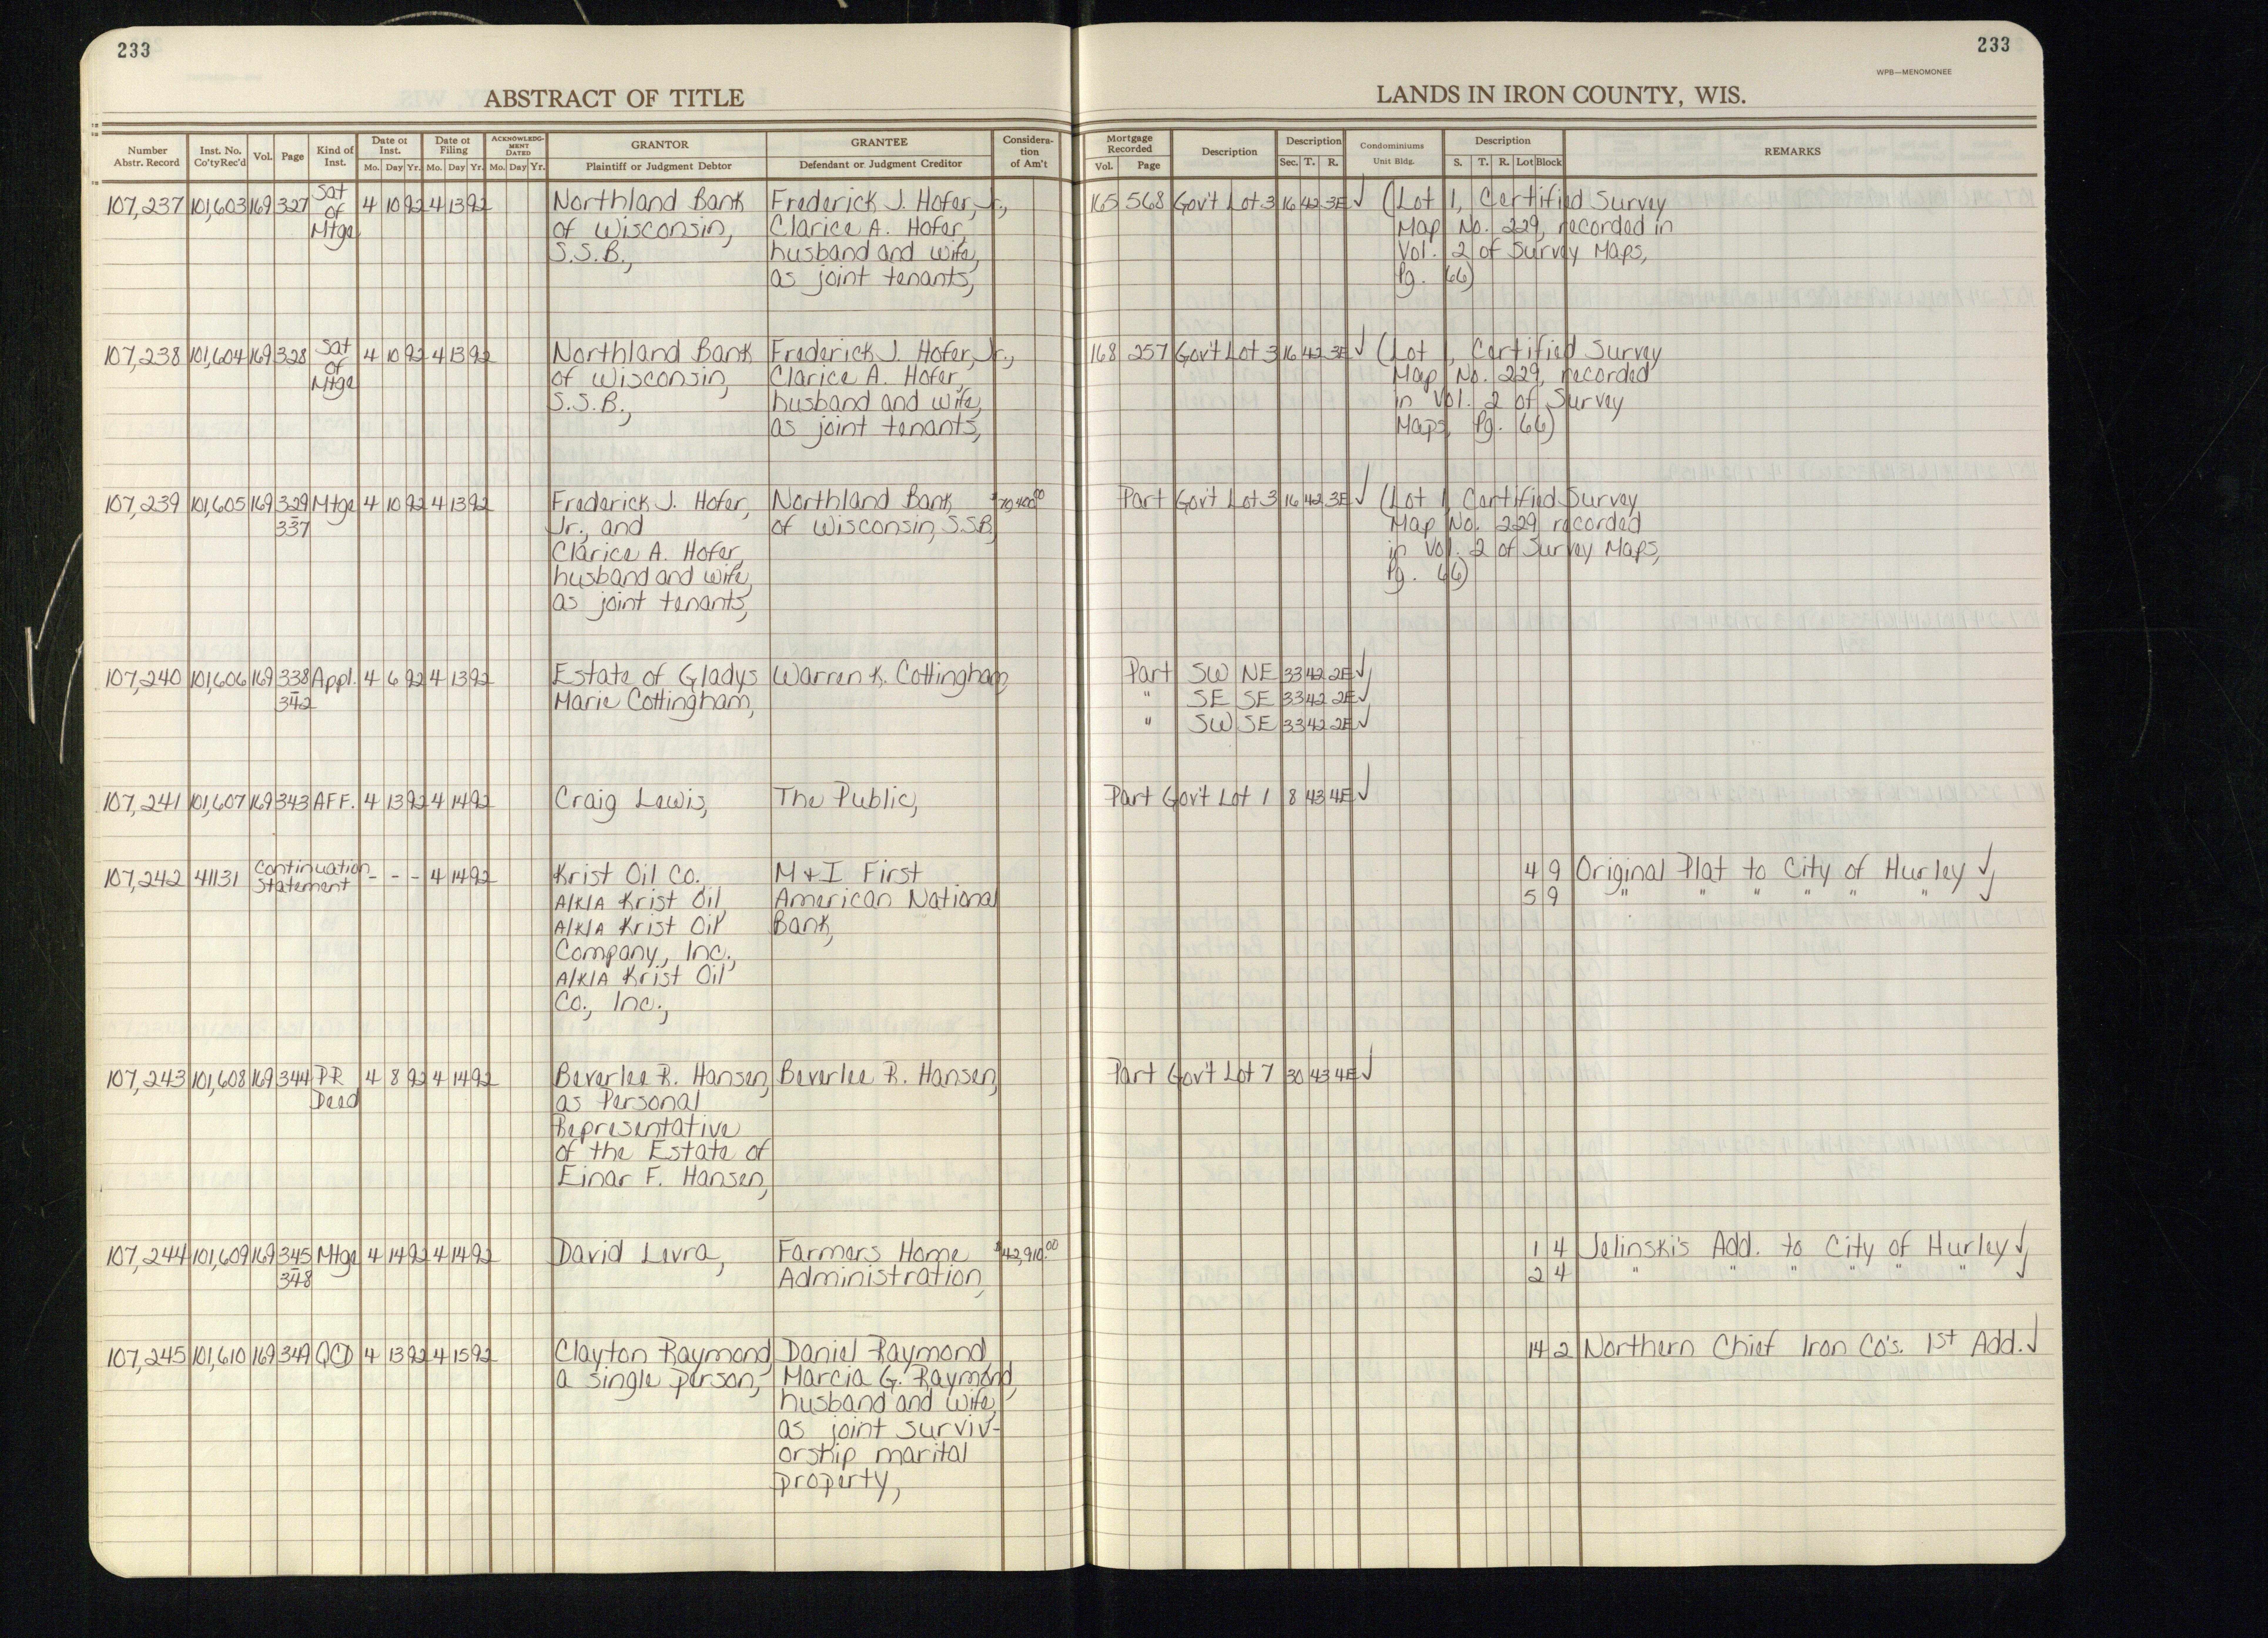 233
ABSTRACT OF TITLE
Number Abstr. Record
Inst. No. Co'ty Rec'd
Vol.
Page
Kind of Inst.
Date of Inst. Mo. Day Yr.
Date of Filing Mo. Day Yr.
ACKNOWLEDG-MENT DATED Mo. Day Yr.
GRANTOR Plaintiff or Judgment Debtor
GRANTEE Defendant or Judgment Creditor
Considera-tion of Am't
233
WPB—MENOMONEE
LANDS IN IRON COUNTY, WIS.
Mortgage Recorded Vol. Page
Description
Description Sec. T. R.
Condominiums Unit Bldg.
Description S. T. R. Lot Block
REMARKS
107,237 101,603 169 327 Sat 4 10 92 4 13 92 Northland Bank Frederick J. Hofer, Jr., 165 568 Gov't Lot 3 16 42 3E ✓ (Lot 1, Certified Survey
of of Wisconsin, Clarice A. Hofer, Map No. 229, recorded in
Mtge S.S.B., husband and wife, Vol. 2 of Survey Maps,
as joint tenants, Pg. 66)
107,238 101,604 169 328 Sat 4 10 92 4 13 92 Northland Bank Frederick J. Hofer, Jr., 168 257 Gov't Lot 3 16 42 3E ✓ (Lot 1, Certified Survey
of of Wisconsin, Clarice A. Hofer, Map No. 229, recorded
Mtge S.S.B., husband and wife, in Vol. 2 of Survey
as joint tenants, Maps, Pg. 66)
107,239 101,605 169 329 Mtge 4 10 92 4 13 92 Frederick J. Hofer, Northland Bank $70,400.00 Part Gov't Lot 3 16 42 3E ✓ (Lot 1, Certified Survey
- 337 Jr., and of Wisconsin, S.S.B., Map No. 229 recorded
Clarice A. Hofer, in Vol. 2 of Survey Maps,
husband and wife, Pg. 66)
as joint tenants,
107,240 101,606 169 338 Appl. 4 6 92 4 13 92 Estate of Gladys Warren K. Cottingham, Part SW NE 33 42 2E ✓
- 342 Marie Cottingham, " SE SE 33 42 2E ✓
" SW SE 33 42 2E ✓
107,241 101,607 169 343 AFF. 4 13 92 4 14 92 Craig Lewis, The Public, Part Gov't Lot 1 8 43 4E ✓
107,242 41131 Continuation - - - 4 14 92 Krist Oil Co. M + I First 4 9 Original Plat to City of Hurley ✓
Statement A/K/A Krist Oil American National 5 9 " " " " " " ✓
A/K/A Krist Oil Bank,
Company, Inc.,
A/K/A Krist Oil
Co., Inc.,
107,243 101,608 169 344 PR 4 8 92 4 14 92 Beverlee R. Hansen, Beverlee R. Hansen, Part Gov't Lot 7 30 43 4E ✓
Deed as Personal
Representative
of the Estate of
Einar F. Hansen,
107,244 101,609 169 345 Mtge 4 14 92 4 14 92 David Levra, Farmers Home $42,910.00 1 4 Jelinski's Add. to City of Hurley ✓
- 348 Administration, 2 4 " " " " " " ✓
107,245 101,610 169 349 QCD 4 13 92 4 15 92 Clayton Raymond Daniel Raymond 14 2 Northern Chief Iron Co's. 1st Add. ✓
a single person, Marcia G. Raymond,
husband and wife,
as joint surviv-
orship marital
property,